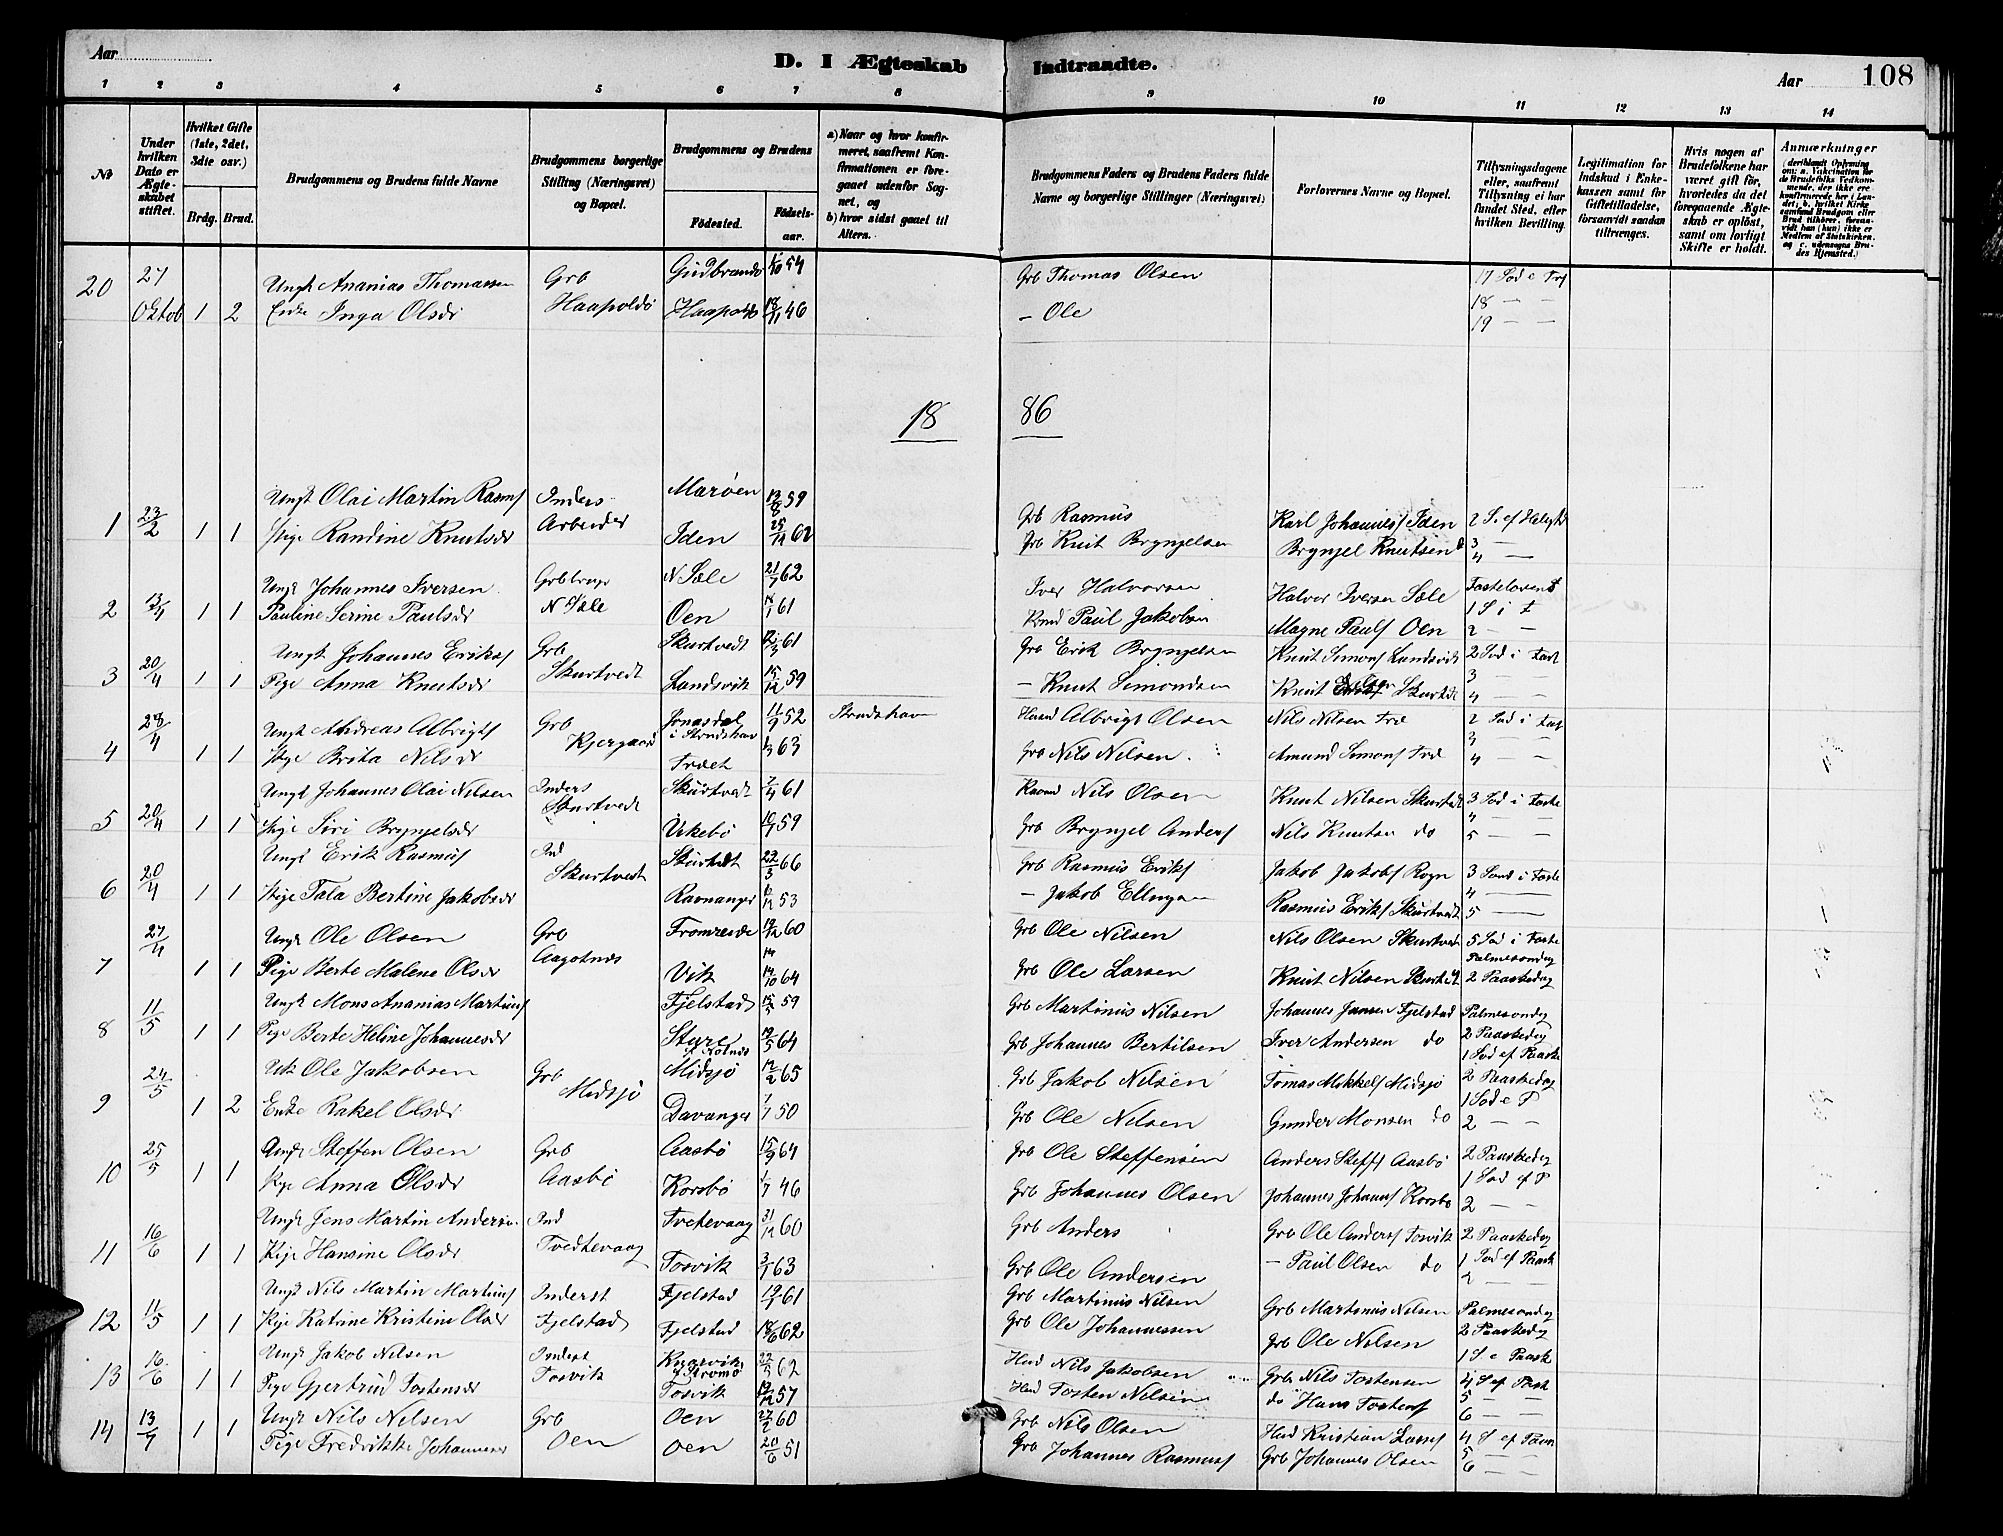 Aar
D. I Ægteskab Indtraadte.
Aar 108
1 2 3 4 5 6 7 8 9 10 11 12 13 14
№
Under hvilken Dato er Ægteskabet stiftet.
Hvilket Gifte (1ste, 2det, 3die osv.)
Brdg. Brud.
Brudgommens og Brudens fulde Navne
Brudgommens borgerlige Stilling (Næringsvei) og Bopæl.
Brudgommens og Brudens
Fødested. Fødselsaar.
a) Naar og hvor konfirmeret, saafremt Konfirmationen er foregaaet udenfor Sognet, og
b) hvor sidst gaaet til Alters.
Brudgommens Faders og Brudens Faders fulde Navne og borgerlige Stillinger (Næringsvei)
Forlovernes Navne og Bopæl.
Tillysningsdagene eller, saafremt Tillysning ei har fundet Sted, efter hvilken Bevilling.
Legitimation for Indskud i Enkekassen samt for Giftetilladelse, forsaavidt saadan tiltrænges.
Hvis nogen af Brudefolkene har været gift før, hvorledes da det foregaaende Ægteskab er opløst, samt om lovligt Skifte er holdt.
Anmærkninger
(deriblandt Oplysning om: a. Vakcination for de Brudefolks Vedkommende, der ikke ere konfirmerede her i Landet; b. hvilket Kirkesamfund Brudgom eller Brud tilhører, forsaavidt han (hun) ikke er Medlem af Statskirken, og c. udensogns Brudes Hjemsted.)
20 27 Oktob 1 2 Ungk Ananias Thomassen Grb Gudbrands 1/10 54 Grb Thomas Olsen 17
Enke Inga Olsdr Haapoldø Haapoldø 18/11 46 - Ole 18 — —
19 — —
18 86
1 23/2 1 1 Ungk Olai Martin Rasms Inders Marøen 13/8 59 Grb Rasmus Karl Johannes Iden 2
Pige Randine Knutsdr Arbeider Iden 25/11 62 Grb Knut Brynjelsen Brynjel Knutsen 3 — 4 —
2 13/4 1 1 Ungk Johannes Iversen N Sæle 21/7 62 Iver Halvorsen Halvor Iversen Sæle
Pauline Serine Paulsdr N Sæle Oen 61 Paul Jakobsen Magne Pauls Oen 1 S i f 2 — —
3 20/4 1 1 Ungk Johannes Eriks Grb Skurtvedt 61 Grb Erik Brynjelsen Knut Simons Landsvik 2 Sød i Fast
Pige Anna Knutsdr Skurtvedt Landsvik 15/12 59 - Knut Simondsen Knut Skurtv 3 — 4 — —
4 28/4 1 1 Ungk Andreas Albrigts Grb Jonasdal i Strudshav 11/9 52 Strudshavn Husmd Albrigt Olsen Nils Nilsen Træ 2 Sød i Fast
Pige Brita Nilsdr Kjergaard Trædet 63 Grb Nils Nilsen Amund Simons Træ 3 — — 4 — —
5 20/4 1 1 Ungk Johannes Olai Nilsen Inders Skurtvedt 7/4 61 Nils Olsen Knut Nilsen Skurtvedt 3 Sød i Faste
Pige Siri Brynjelsdr Skurtvedt Virkebø 10/7 59 Grb Brynjel Anders Nils Knutsen do 4 — — 5 — —
6 20/4 1 1 Ungk Erik Rasmus Ind Skurtvedt 22/3 66 Grb Rasmus Eriks Jakob Jakobs Rogn 3 Sønd i Faste
Pige Tala Bertine Jakobsdr Skurtvedt Ravnanger 53 - Jakob Ellingsen Rasmus Eriks Skurtvedt 4 — 5 —
7 27/4 1 1 Ungk Ole Olsen Grb Fromreide 60 Grb Ole Nilsen Nils Olsen Skurtvedt 5 Sød i Faste Palmesondag
Pige Berte Malene Olsdr Aagotnes Vik 14/10 64 Grb Ole Larsen Knut Nilsen Skurtvedt 2 Paaskedag
8 11/5 1 1 Ungk Mons Ananias Martinus Fjelstad 15/5 59 Grb Martinus Nilsen Johannes Jansen Fjelstad Palmesondag
Pige Berte Heline Johannesdr Sture 19/5 64 Grb Johannes Bertilsen Iver Andersen do 2 Paaskedag 1 Sød ef Paask
9 24/5 1 2 Uk Ole Jakobsen Grb Midsjø 12/2 65 Grb Jakob Nilsen Tomas Mikkels Midsjø 2 Paaskedag
Enke Rakel Olsdr Midsjø Davanger 7/7 50 Grb Ole Nilsen Gunder Monsen do 1 Sød e P 2 — —
10 25/5 1 1 Ungk Steffen Olsen Grb Aasbø 15/9 64 Grb Ole Steffensen Anders Steffs Aasbø 2 Paaskedag
Pige Anna Olsdr Aasbø Korsbø 1/7 46 Grb Johannes Olsen Johannes Johanns Korsbø 1 Sød ef P 2 — —
11 16/6 1 1 Ungk Jens Martin Andersen Ind Tvetevaag 31/12 60 Grb Anders Grb Ole Anders Tosvik 2 Paaskedag
Pige Hansine Olsdr Tvedtevaag Tosvik 3/1 63 Grb Ole Andersen - Paul Olsen do 1 Sød ef Paask 2 — —
12 11/5 1 1 Ungk Nils Martin Martinus Inderst Fjelstad 61 Grb Martinus Nilsen Grb Martinus Nilsen Palmesondag
Pige Katrine Kristine Olsdr Fjelstad Fjelstad 18/6 62 Grb Ole Johannessen Grb Ole Nilsen 2 Paaskedag 1 S e Paask
13 16/6 1 1 Ungk Jakob Nilsen Inderst 22/5 62 Husd Nils Jakobsen Grb Nils Tostensen 4 S ef Pask
Pige Gjertrud Tostensdr Tosvik Tosvik 57 Husd Tosten Nilsen do Hans Tostens 5 — — 6 — —
14 13/7 1 1 Ungk Nils Nilsen Grb Oen 27/2 60 Grb Nils Olsen Husd Kristian Larss 4 S ef Paas
Pige Fredrikke Johannesdr Oen Oen 20/6 51 Grb Johannes Rasmuss Grb Johannes Olsen 5 — 6 — —